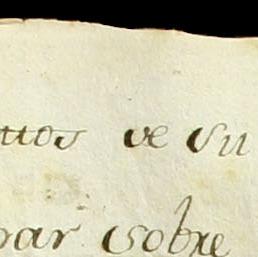 ttos de su
rar sobre